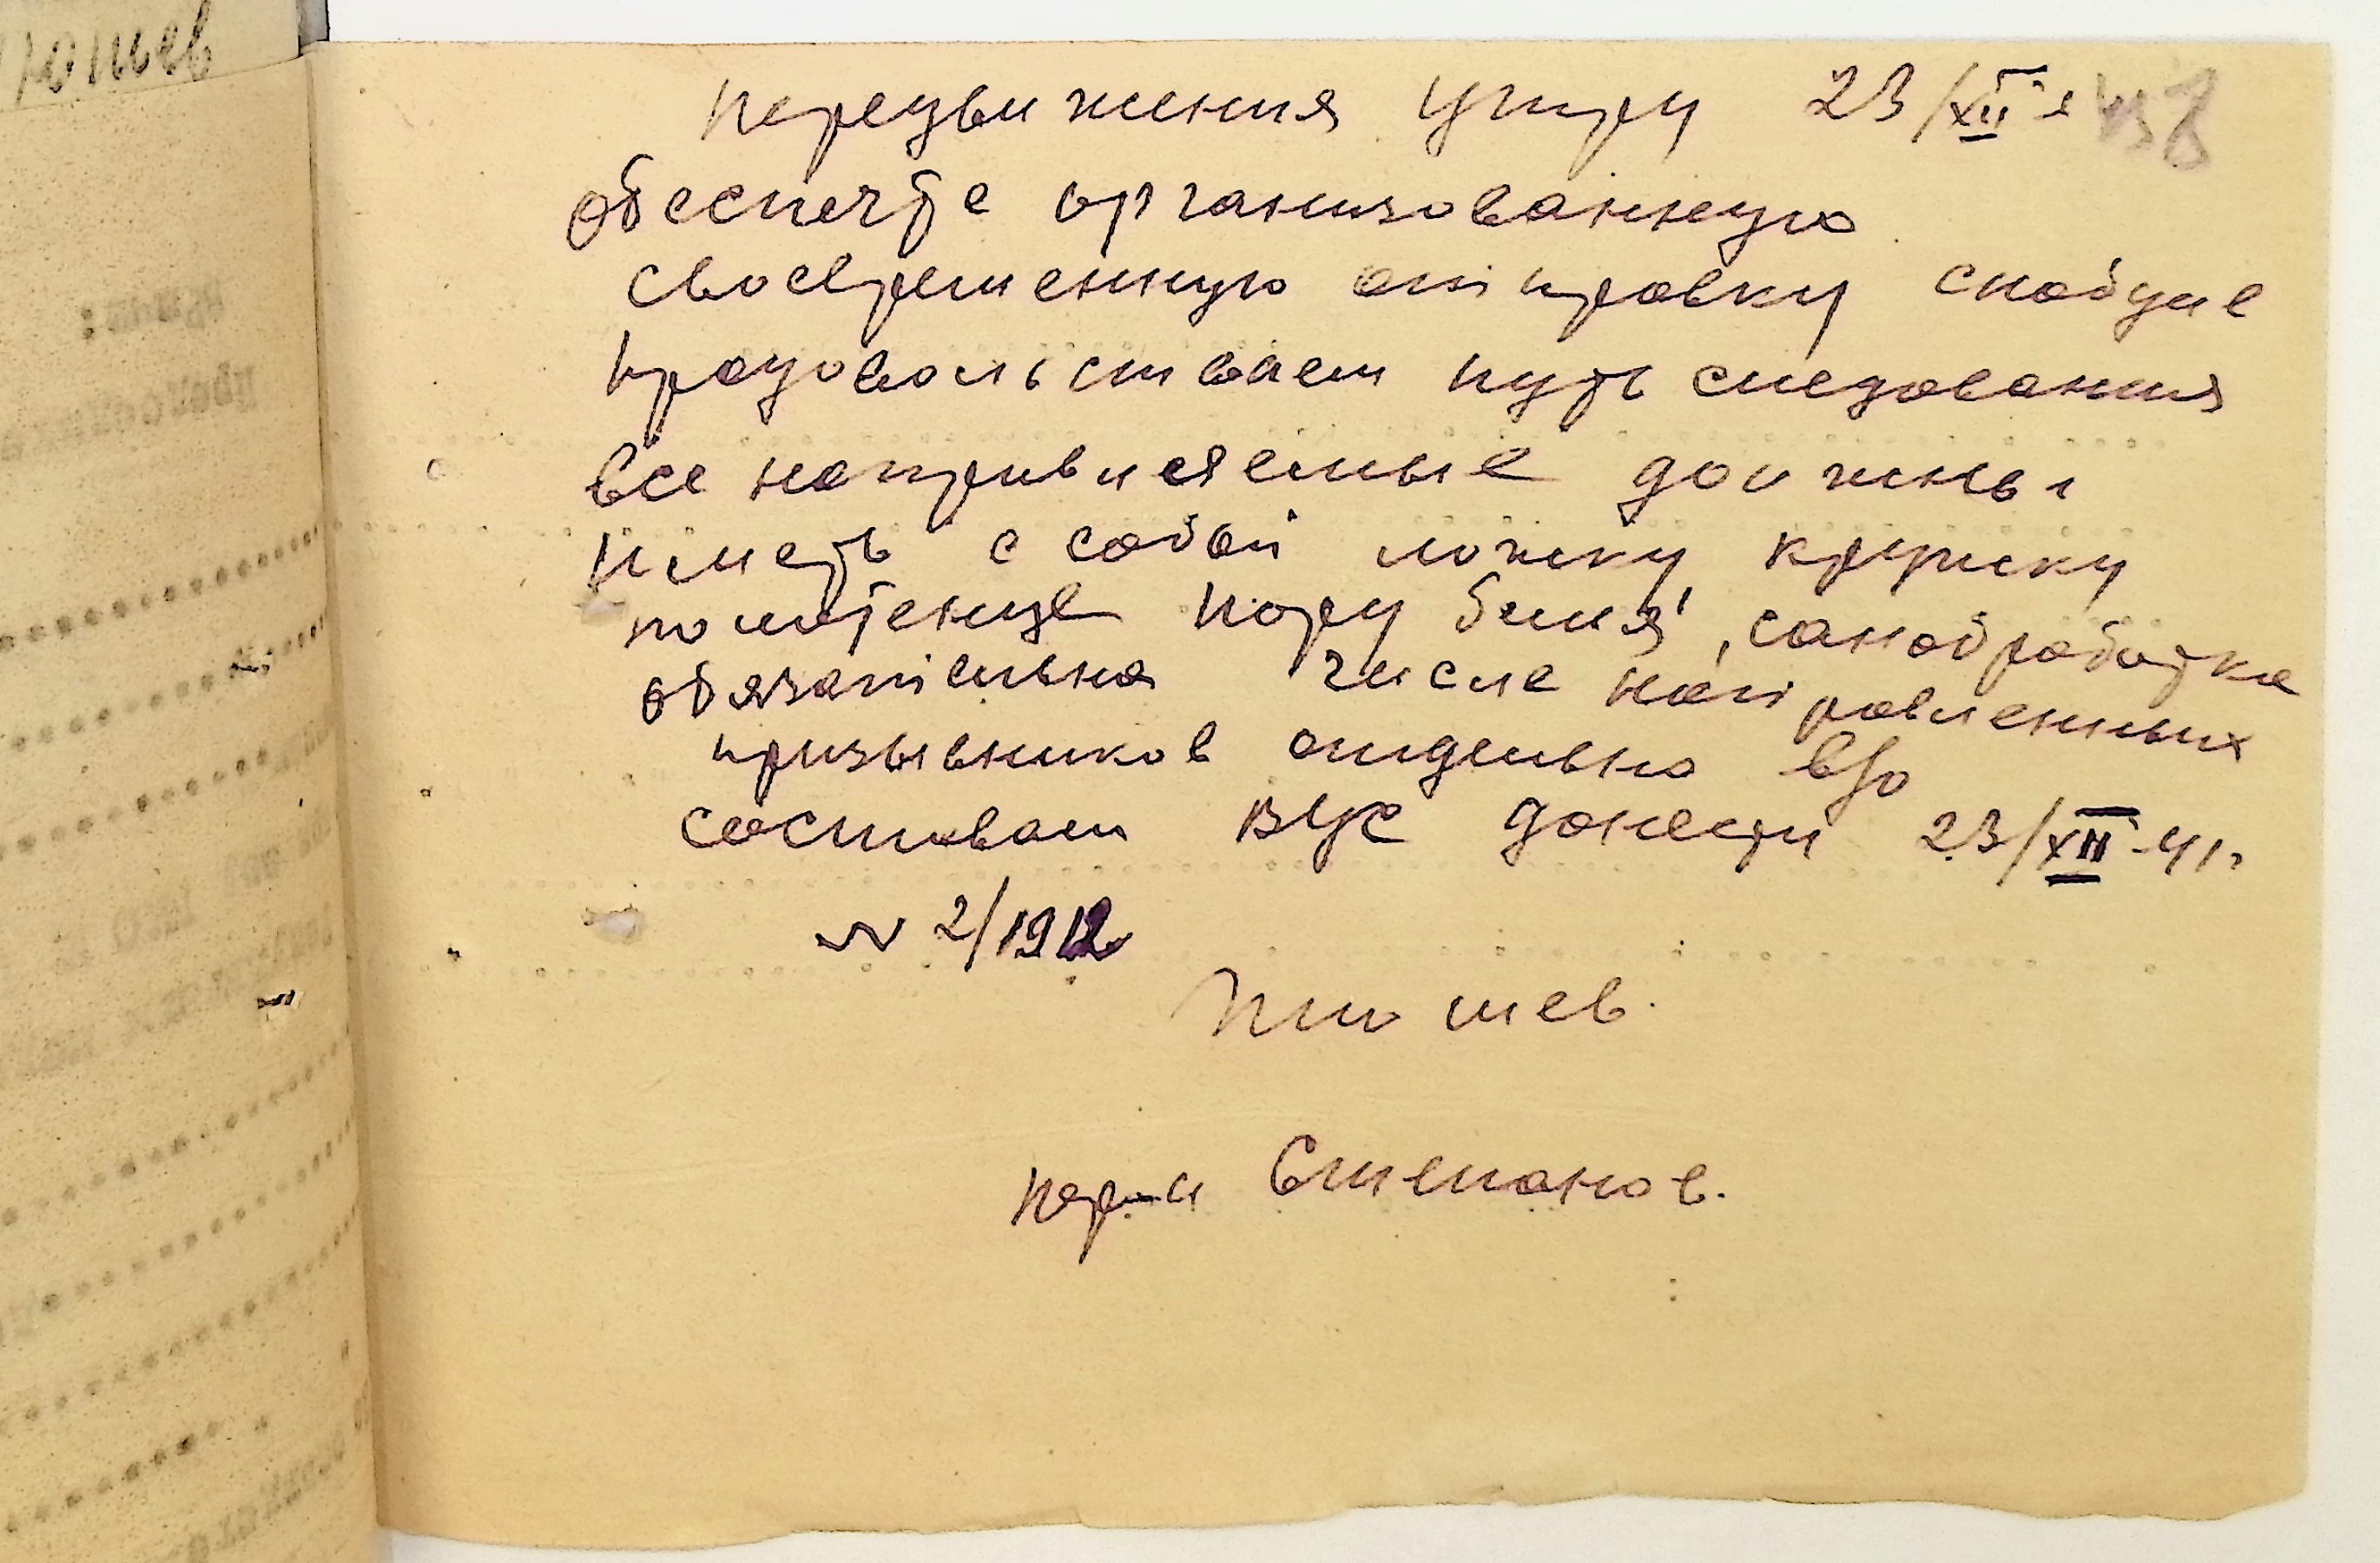 юшев
передвижения утру 23/XII-
обеспечте организованную
своевременную отправку снабдив
продовольствием путь следования
все направляемые должны
иметь с собой ложку кружку
полотенце пару белия, санобработка
обязательна числе направленных
призывников отдельно в/о
составам ВУС донести 23/XII-41г
N 2/1912
Плюшев.
пер-л Степанов.